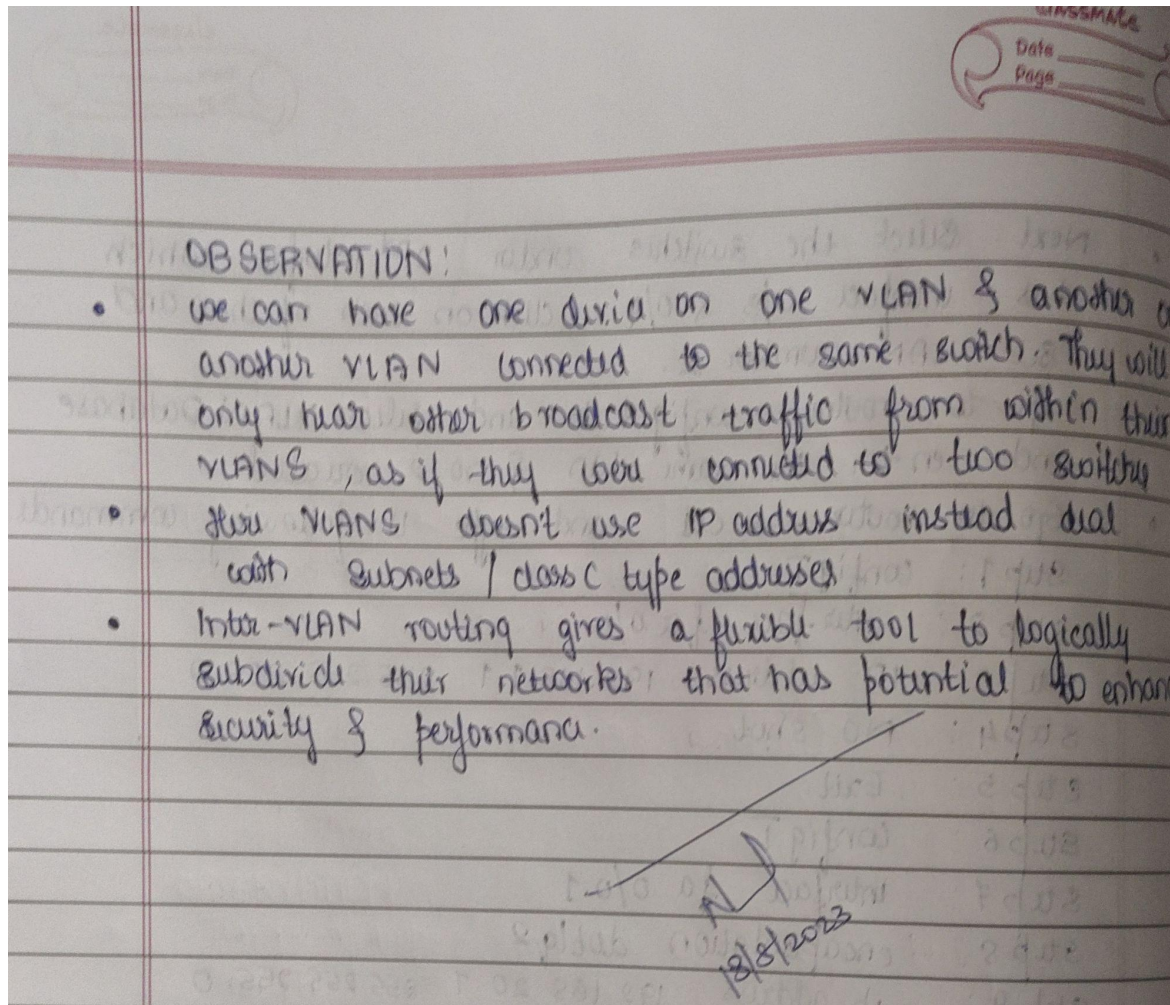 classmate
Date
Page
OBSERVATION:
• we can have one device on one VLAN & another o
another VLAN connected to the same switch. They will
only hear other broadcast traffic from within their
VLANS, as if they were connected to two switches
• Here VLANS doesn't use IP address instead deal
with subnets / class C type addresses
• Inter-VLAN routing gives a flexible tool to logically
subdivide their networks that has potential to enhan
security & performance.
18/8/2023